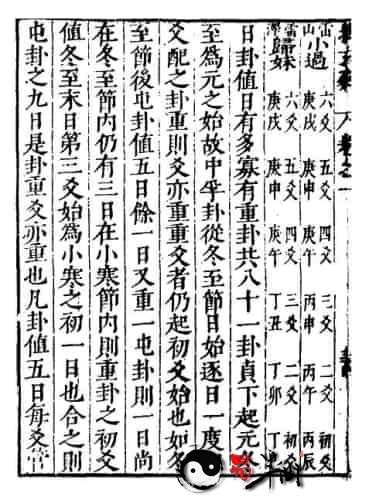 卷之一
雷山小過 六爻 五爻 四爻 三爻 二爻 初爻
庚戌 庚申 庚午 丙申 丙午 丙辰
雷澤歸妹 六爻 五爻 四爻 三爻 二爻 初爻
庚戌 庚申 庚午 丁丑 丁卯 丁
日卦值日有多寡有重卦共八十一卦貞下起元
至爲元之始故中孚卦從冬至節日始逐日一度
爻配之卦重則爻亦重重爻者仍起初爻始也如冬
至節後屯卦值五日餘一日又重一屯卦則一日尚
在冬至節內仍有三日在小寒節內則重卦之初爻
值冬至末日第三爻始爲小寒之初一日也合之則
屯卦之九日是卦重爻亦重也凡卦值五日每爻管